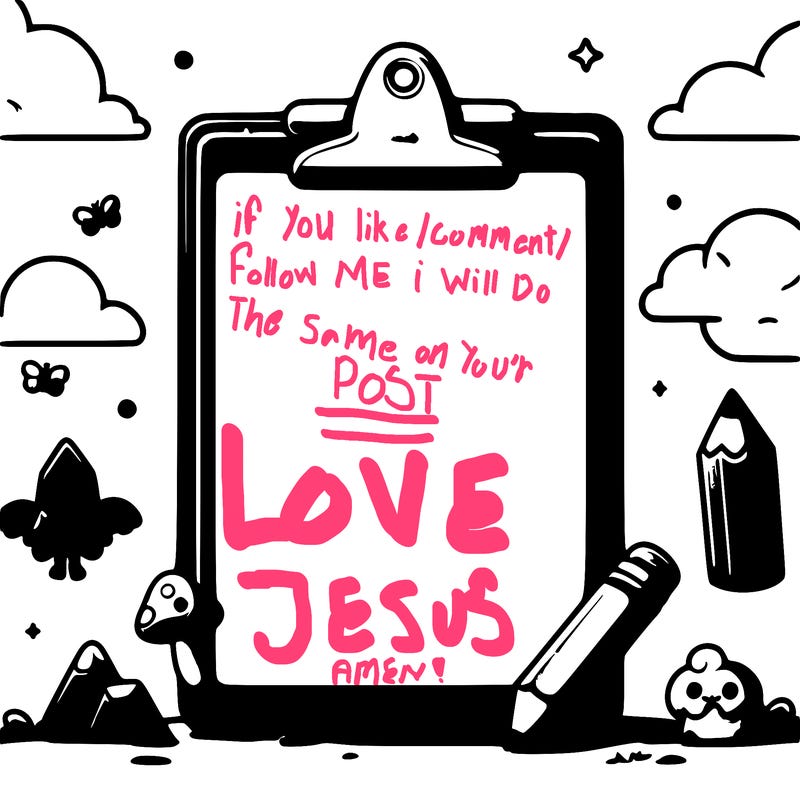 if you like/comment/
Follow ME i Will Do
The Same on You'r
POST
LOVE
JESUS
AMEN!